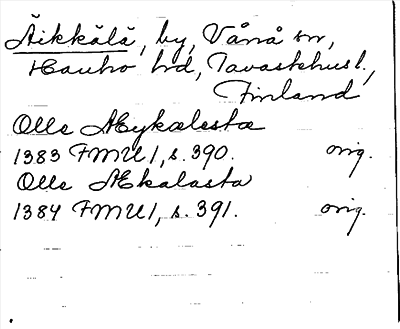 Äikkälä, by, Vånå sn,
Hauho hd, Tavastehusl.,
Finland
Olle Æykælestæ
1383 FMU 1, s. 390. orig.
Olle Ækalasta
1384 FMU 1, s. 391. orig.